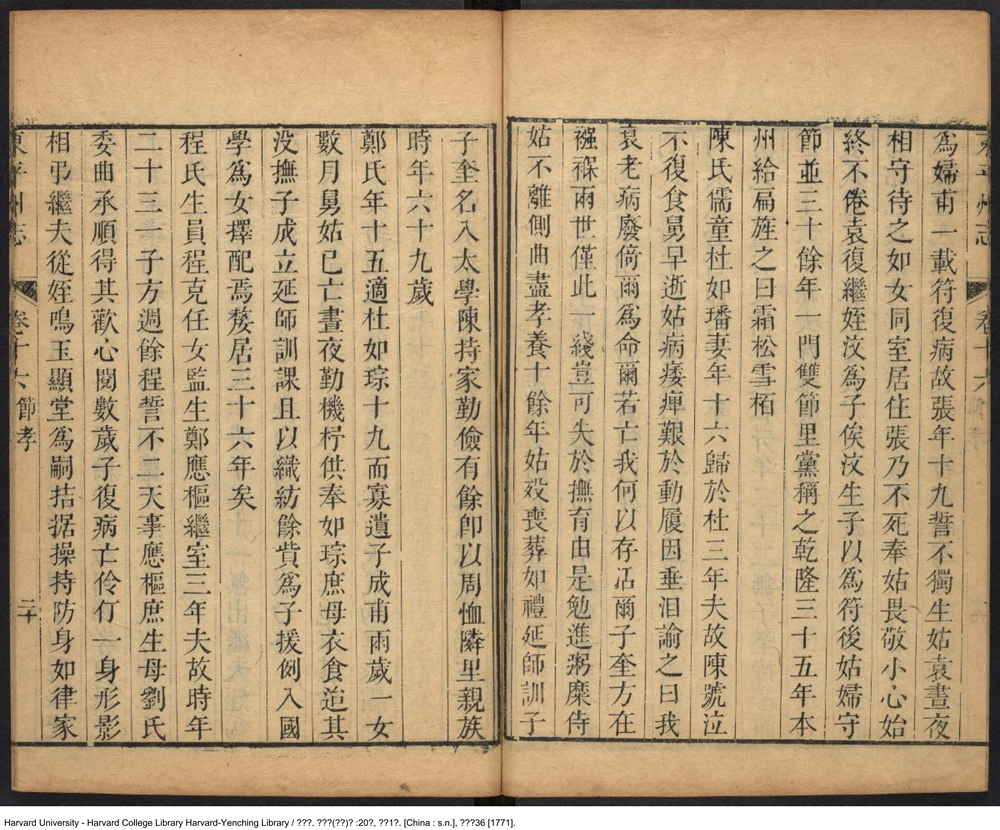 爲婦甫一載符復病故張年十九誓不獨生姑袁晝夜
相守待之如女同室居住張乃不死奉姑畏敬小心始
終不倦袁復繼姪汶爲子俟汶生子以爲符後姑婦守
節並三十餘年一門雙節里黨稱之乾隆三十五年本
州給扁旌之曰霜松雪栢
陳氏儒童杜如璠妻年十六歸於杜三年夫故陳號泣
不復食舅早逝姑病痿痺艱於動履因垂泪諭之曰我
衰老病廢倚爾爲命爾若亡我何以存活爾子奎方在
襁褓兩世僅此一綫豈可失於撫育由是勉進粥糜侍
姑不離側曲盡孝養十餘年姑歿喪葬如禮延師訓子
子奎名入太學陳持家勤儉有餘卽以周恤隣里親族
時年六十九歲
鄭氏年十五適杜如琮十九而寡遺子成甫兩歲一女
數月舅姑已亡晝夜勤機杼供奉如琮庶母衣食迨其
没撫子成立延師訓課且以織紡餘貲爲子援例入國
學爲女擇配焉嫠居三十六年矣
程氏生員程克任女監生鄭應樞繼室三年夫故時年
二十三一子方週餘程誓不二天事應樞庶生母劉氏
委曲承順得其歡心閱數歲子復病亡伶仃一身形影
相弔繼夫從姪鳴玉顯堂爲嗣拮据操持防身如律家
東平州志 卷十六 節孝 二十
Harvard University - Harvard College Library Harvard-Yenching Library / ???. ???(??)? :20?, ??1?. [China : s.n.], ???36 [1771].